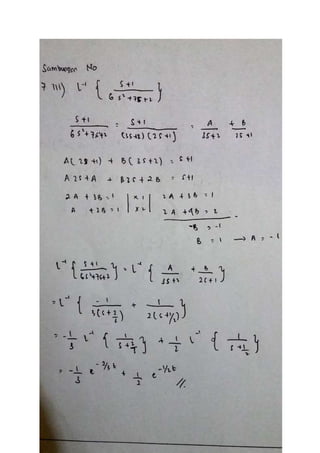 Sambungan No
7 III) L⁻¹ { s+1 / 6s²+7s+2 }
s+1 / 6s²+7s+2 = s+1 / (3s+2)(2s+1) = A / 3s+2 + B / 2s+1
A(2s+1) + B(3s+2) = s+1
A2s+A + B3s+2B = s+1
2A + 3B = 1 | x1 | 2A + 3B = 1
A + 2B = 1 | x2 | 2A + 4B = 2 -
-B = -1
B = 1 → A = -1
L⁻¹ { s+1 / 6s²+7s+2 } = L⁻¹ { A / 3s+2 + B / 2s+1 }
= L⁻¹ { -1 / 3(s+2/3) + 1 / 2(s+1/2) }
= -1/3 L⁻¹ { 1 / s+2/3 } + 1/2 L⁻¹ { 1 / s+1/2 }
= -1/3 e^-2/3t + 1/2 e^-1/2t //.